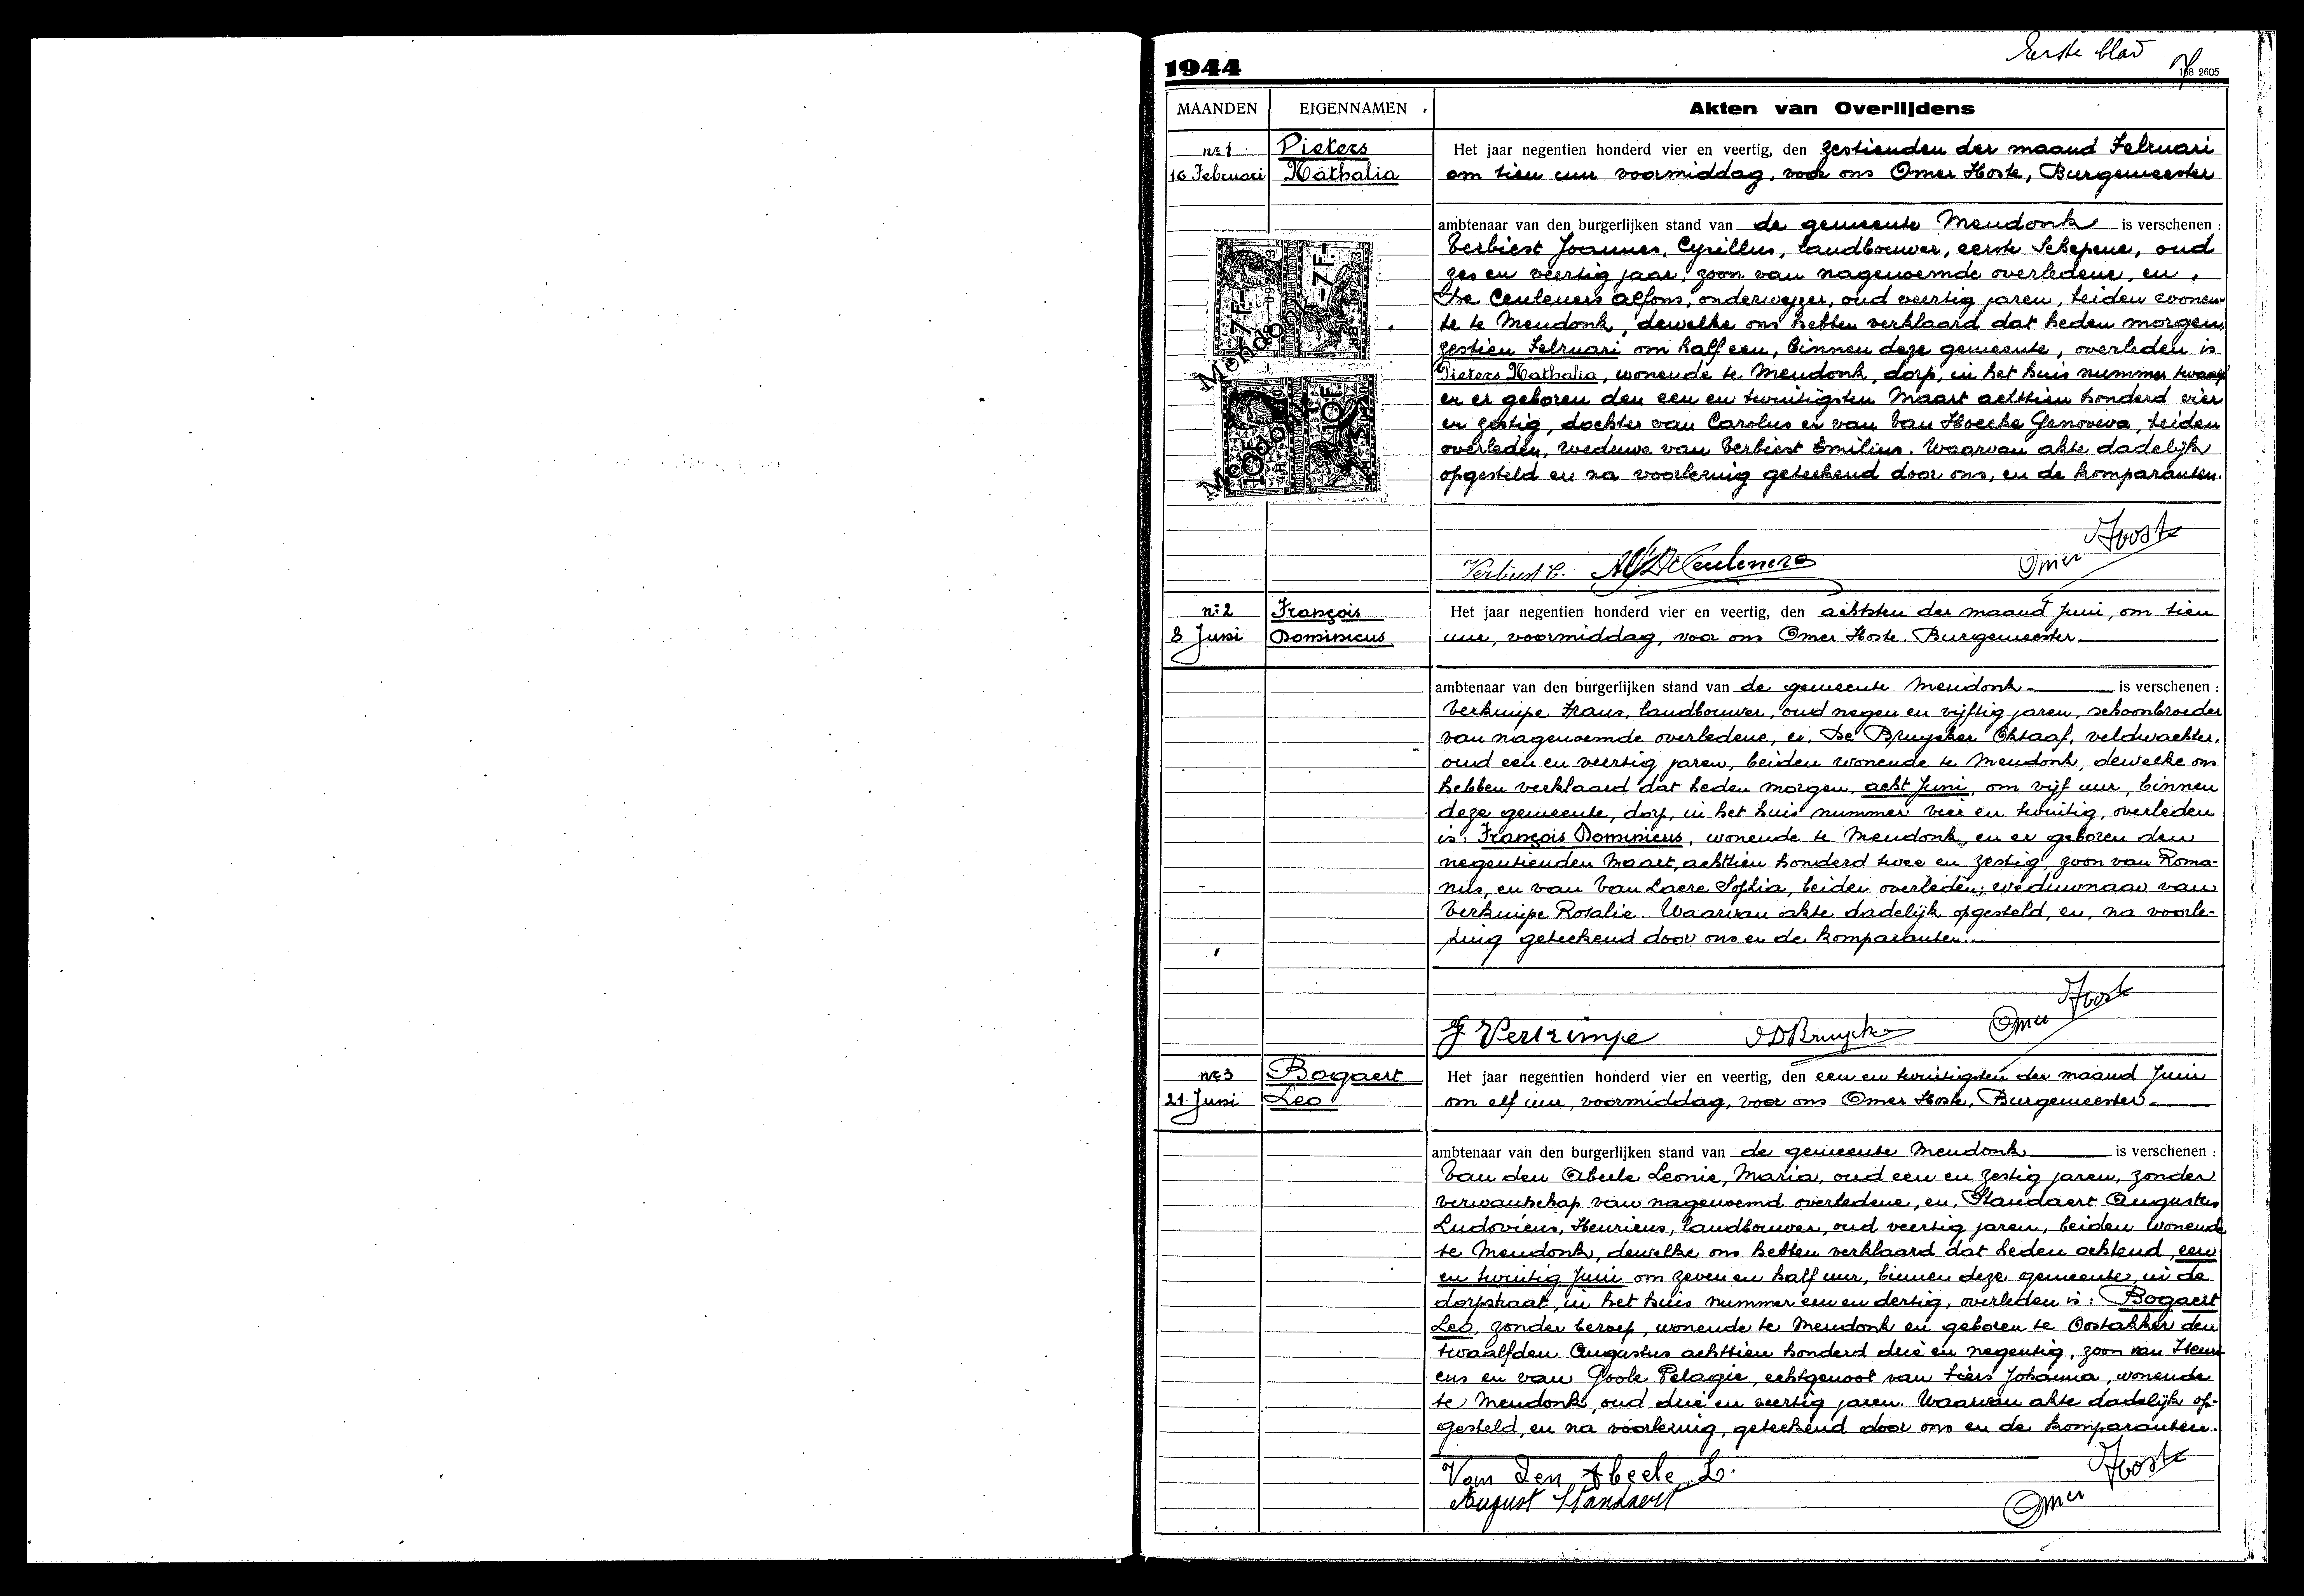 Eerste blad
1944
168 2605
MAANDEN EIGENNAMEN Akten van Overlijdens
nr 1 Pieters Het jaar negentien honderd vier en veertig, den zestienden der maand Februari
16 Februari Nathalia om tien uur voormiddag, voor ons Omer Hoste, Burgemeester
ambtenaar van den burgerlijken stand van de gemeente Mendonk is verschenen :
Verbiest Joannes, Cyrillus, landbouwer, eerste Schepene, oud
zes en veertig jaar, zoon van nagenoemde overledene, en,
De Ceuleners Alfons, onderwyzer, oud veertig jaren, beiden wonen-
de te Mendonk, dewelke ons hebben verklaard dat heden morgen,
zestien Februari om half een, binnen deze gemeente, overleden is
Pieters Nathalia, wonende te Mendonk, dorp, in het huis nummer twaalf
en er geboren den een en twintigsten Maart achttien honderd vier
en zestig, dochter van Carolus en van Van Hoecke Genoveva, beiden
overleden, weduwe van Verbiest Emilius. Waarvan akte dadelijk
opgesteld en na voorlezing geteekend door ons, en de komparanten.
-7F- -7F-
Mendonk
10F 10F
Mendonk
Verbiest C. Alf De Ceuleners Omer Hoste
nr 2 François Het jaar negentien honderd vier en veertig, den achtsten der maand Juni, om tien
8 Juni Dominicus uur, voormiddag, voor ons Omer Hoste. Burgemeester.
ambtenaar van den burgerlijken stand van de gemeente Mendonk is verschenen :
Verkimpe Frans, landbouwer, oud negen en vijftig jaren, schoonbroeder
van nagenoemde overledene, en, De Bruycker Oktaaf, veldwachter,
oud een en veertig jaren, beiden wonende te Mendonk, dewelke ons
hebben verklaard dat heden morgen, acht Juni, om vijf uur, binnen
deze gemeente, dorp, in het huis nummer vier en twintig, overleden
is: François Dominicus, wonende te Mendonk, en er geboren den
negentienden Maart, achttien honderd twee en zestig, zoon van Roma-
nus, en van Van Laere Sophia, beiden overleden; weduwnaar van
Verkimpe Rosalie. Waarvan akte dadelijk opgesteld, en, na voorle-
zing geteekend door ons en de komparanten.
F Verkimpe O DBruycker Omer Hoste
nr 3 Bogaert Het jaar negentien honderd vier en veertig, den een en twintigsten der maand Juni
21 Juni Leo om elf uur, voormiddag, voor ons Omer Hoste. Burgemeester.
ambtenaar van den burgerlijken stand van de gemeente Mendonk is verschenen :
Van den Abeele Leonie, Maria, oud een en zestig jaren, zonder
verwantschap van nagenoemd overledene, en, Standaert Augustus
Ludovicus, Henricus, landbouwer, oud veertig jaren, beiden wonende
te Mendonk, dewelke ons hebben verklaard dat heden ochtend, een
en twintig Juni om zeven en half uur, binnen deze gemeente, in de
dorpstraat, in het huis nummer een en dertig, overleden is: Bogaert
Leo, zonder beroep, wonende te Mendonk en geboren te Oostakker den
twaalfden Augustus achttien honderd drie en negentig, zoon van Henri-
cus en van Goole Pelagie, echtgenoot van Liers Johanna, wonende
te Mendonk, oud drie en veertig jaren. Waarvan akte dadelijk op-
gesteld, en na voorlezing, geteekend door ons en de komparanten.
Van Den Abeele L. Omer Hoste
August Standaert